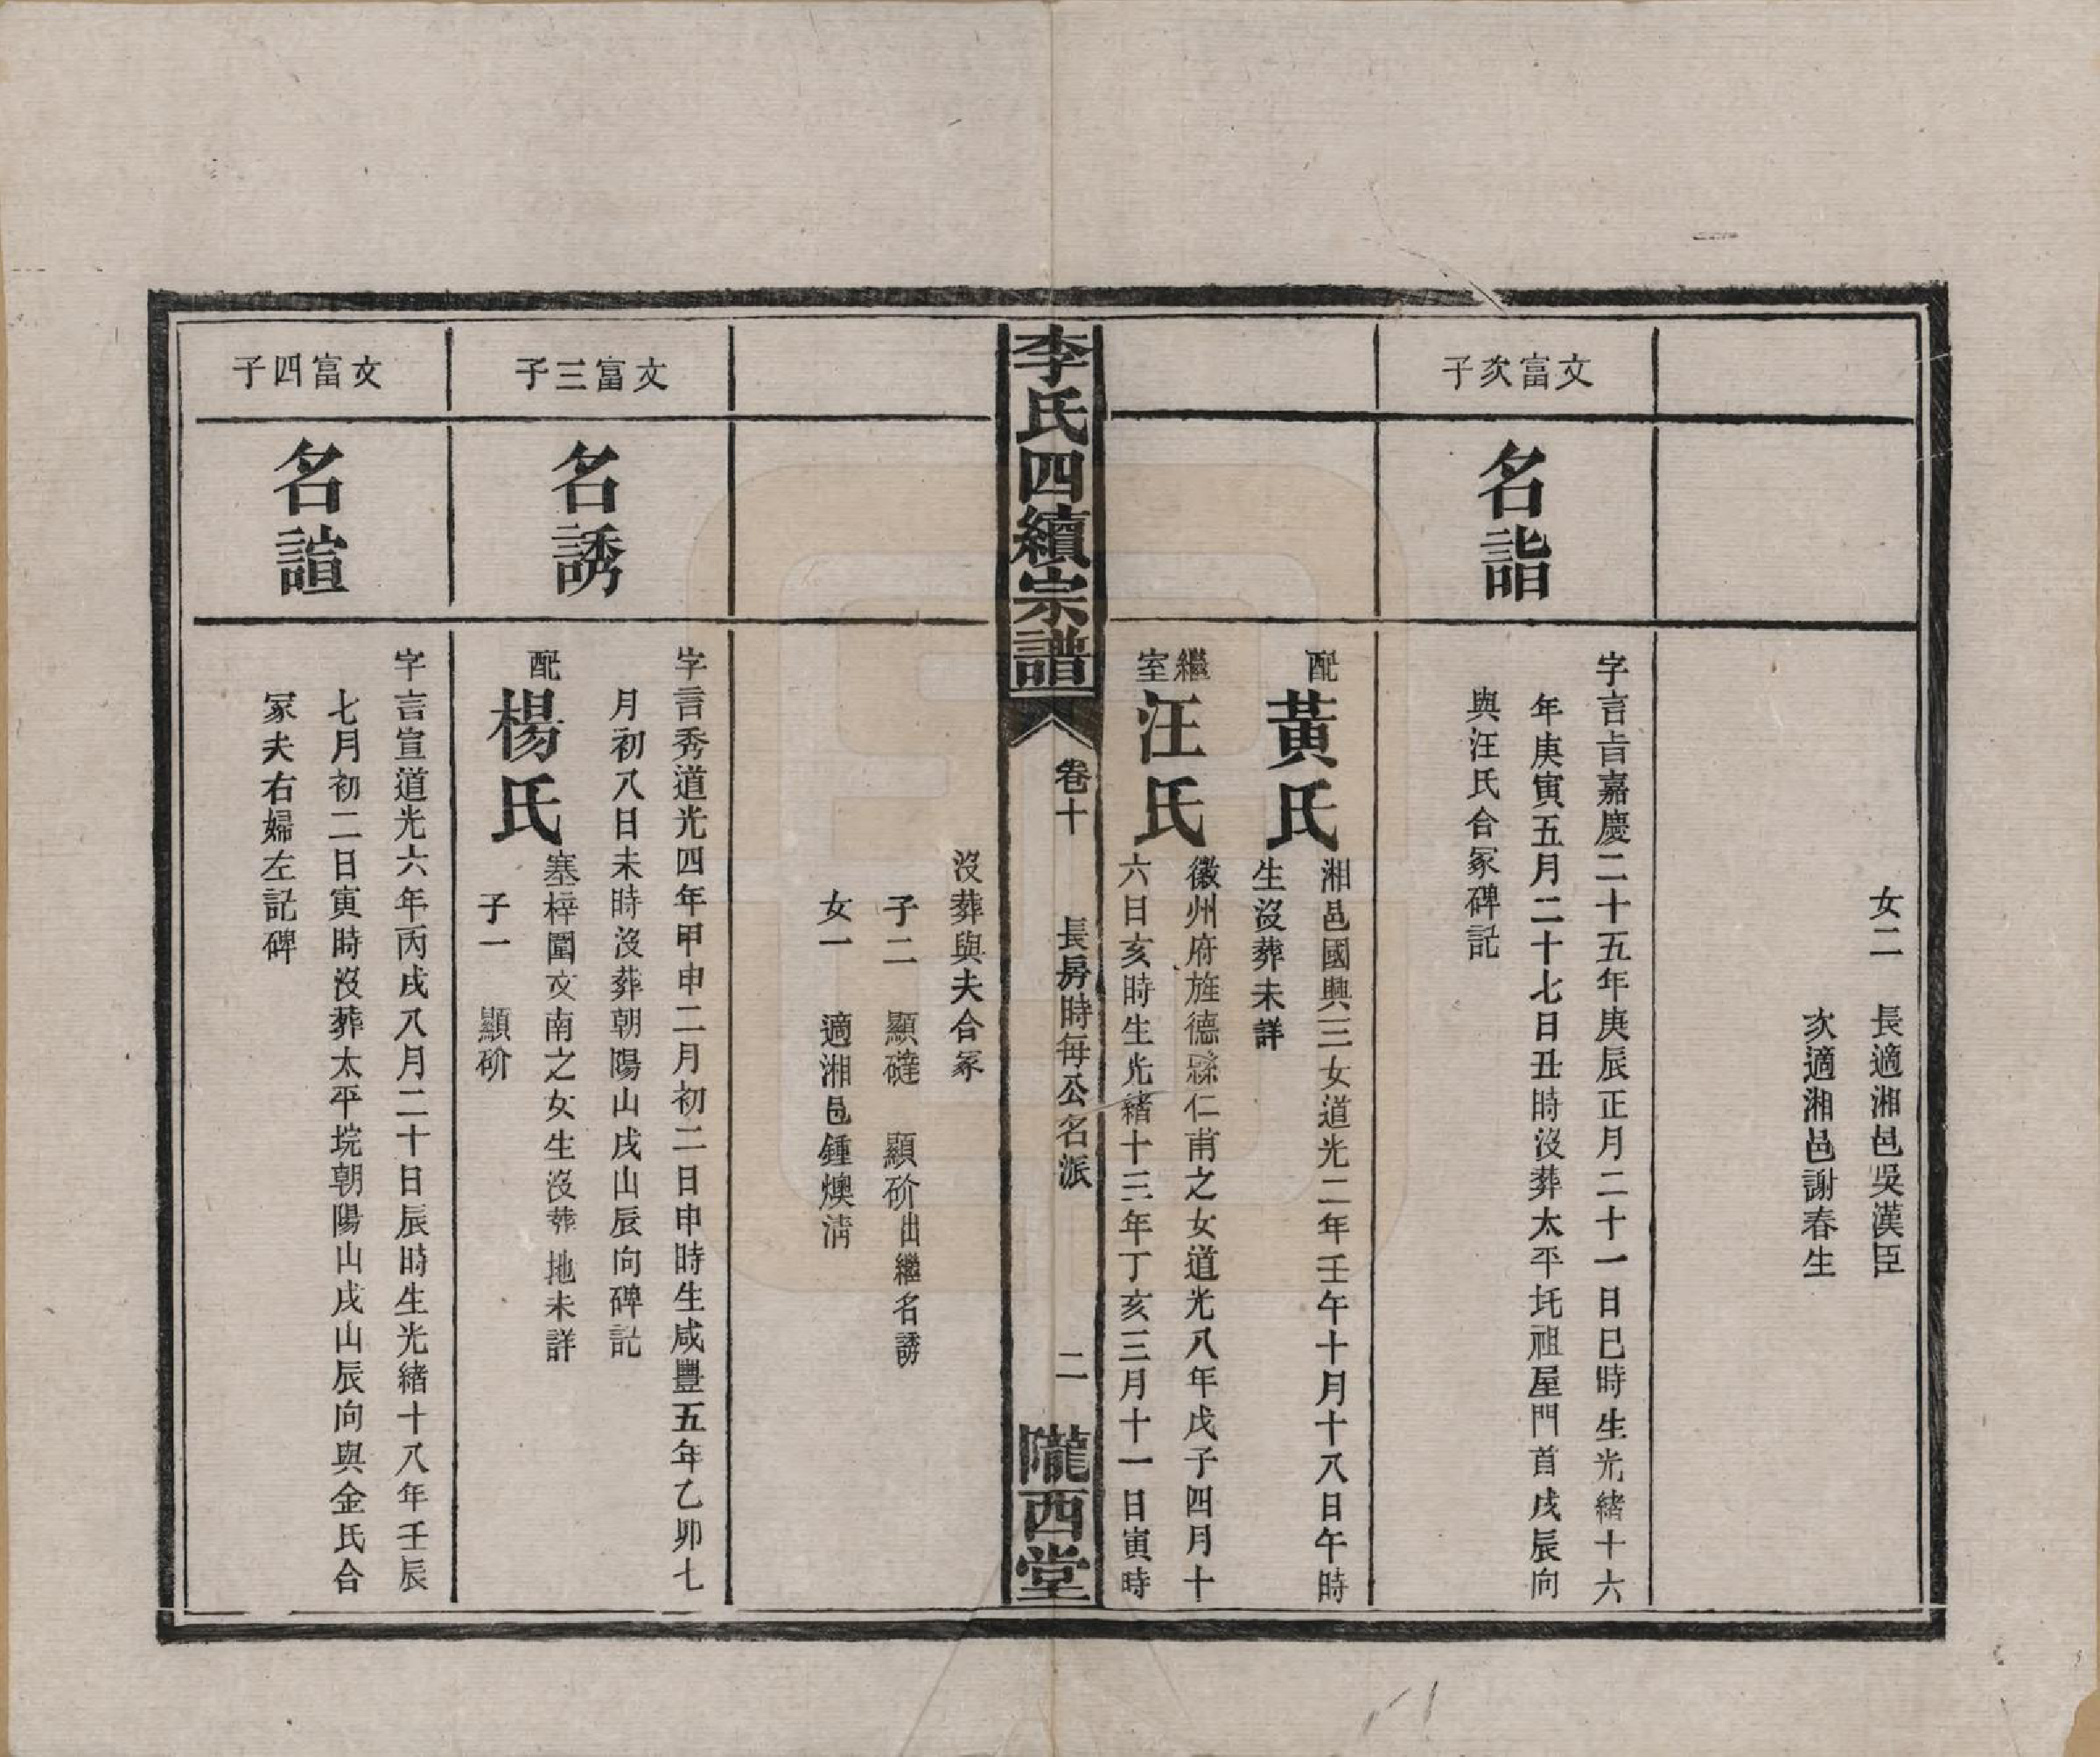 女二 長適湘邑吳漢臣
次適湘邑謝春生
文富次子
名詣
字言旨嘉慶二十五年庚辰正月二十一日巳時生光緒十六
年庚寅五月二十七日丑時沒葬太平圫祖屋門首戌辰向
與汪氏合冢碑記
配黃氏
湘邑國興三女道光二年壬午十月十八日午時
生沒葬未詳
繼室汪氏
徽州府旌德縣仁甫之女道光八年戊子四月十
六日亥時生光緒十三年丁亥三月十一日寅時
李氏四續宗譜
卷十
長房時每公名派
二
隴西堂
沒葬與夫合冢
子二 顯䃮 顯砎出繼名誘
女一 適湘邑鍾燠清
文富三子
名誘
字言秀道光四年甲申二月初二日申時生咸豐五年乙卯七
月初八日未時沒葬朝陽山戌山辰向碑記
配楊氏
塞梓圍文南之女生沒葬地未詳
子一 顯砎
文富四子
名諠
字言宣道光六年丙戌八月二十日辰時生光緒十八年壬辰
七月初二日寅時沒葬太平垸朝陽山戌山辰向與金氏合
冢夫右婦左記碑